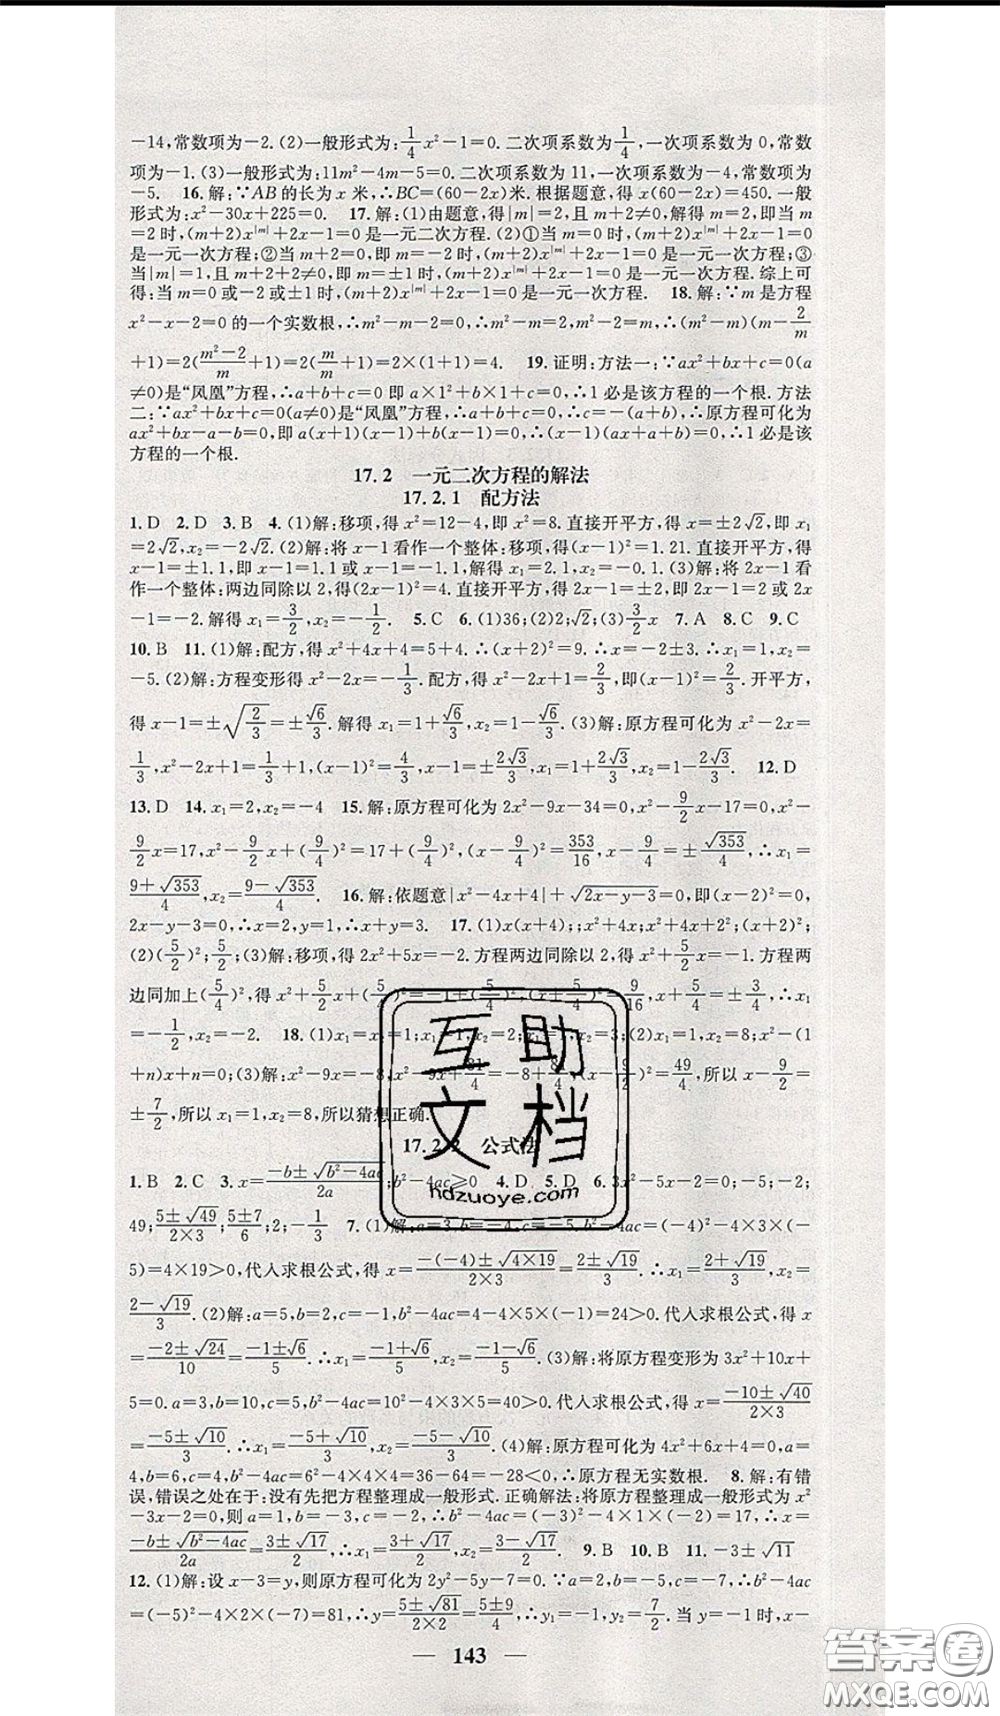 -14,常数项为-2.(2)一般形式为:1/4x²-1=0.二次项系数为1/4,一次项系数为0,常数
项为-1.(3)一般形式为:11m²-4m-5=0.二次项系数为11,一次项系数为-4,常数项为
-5. 16.解:∵AB的长为x米,∴BC=(60-2x)米.根据题意,得x(60-2x)=450.一般
形式为:x²-30x+225=0. 17.解:(1)由题意,得|m|=2,且m+2≠0,解得m=2,即当m
=2时,(m+2)x^|m|+2x-1=0是一元二次方程.(2)①当m=0时,(m+2)x^|m|+2x-1=0
是一元一次方程;②当m+2=0,即m=-2时,(m+2)x^|m|+2x-1=0是一元一次方程;③
当|m|=1,且m+2+2≠0,即m=±1时,(m+2)x^|m|+2x-1=0是一元一次方程.综上可
得:当m=0或-2或±1时,(m+2)x^|m|+2x-1=0是一元一次方程. 18.解:∵m是方程
x²-x-2=0的一个实数根,∴m²-m-2=0,∴m²-2=m,m²-m=2,∴(m²-m)(m-2/m
+1)=2((m²-2)/m+1)=2(m/m+1)=2×(1+1)=4. 19.证明:方法一:∵ax²+bx+c=0(a
≠0)是“凤凰”方程,∴a+b+c=0即a×1²+b×1+c=0,∴1必是该方程的一个根.方法
二:∵ax²+bx+c=0(a≠0)是“凤凰”方程,∴a+b+c=0,∴c=-(a+b),∴原方程可化为
ax²+bx-a-b=0,即a(x+1)(x-1)+b(x-1)=0,∴(x-1)(ax+a+b)=0,∴1必是该
方程的一个根.
17.2 一元二次方程的解法
17.2.1 配方法
1.D 2.D 3.B 4.(1)解:移项,得x²=12-4,即x²=8.直接开平方,得x=±2√2,即x₁
=2√2,x₂=-2√2.(2)解:将x-1看作一个整体:移项,得(x-1)²=1.21.直接开平方,得
x-1=±1.1,即x-1=1.1或x-1=-1.1,解得x₁=2.1,x₂=-0.1.(3)解:将2x-1看
作一个整体:两边同除以2,得(2x-1)²=4.直接开平方,得2x-1=±2,即2x-1=2或2x
-1=-2.解得x₁=3/2,x₂=-1/2. 5.C 6.(1)36;(2)2;√2;(3)3/2x 7.A 8.C 9.C
10.B 11.(1)解:配方,得x²+4x+4=5+4.∴(x+2)²=9.∴x=-2±3.∴x₁=1,x₂=
-5.(2)解:方程变形得x²-2x=-1/3.配方,得x²-2x+1=2/3,即(x-1)²=2/3.开平方,
得x-1=±√(2/3)=±√6/3.解得x₁=1+√6/3,x₂=1-√6/3.(3)解:原方程可化为x²-2x=
1/3,x²-2x+1=1/3+1,(x-1)²=4/3,x-1=±2√3/3,x₁=1+2√3/3,x₂=1-2√3/3. 12.D
13.D 14.x₁=2,x₂=-4 15.解:原方程可化为2x²-9x-34=0,x²-9/2x-17=0,x²-
9/2x=17,x²-9/2x+(9/4)²=17+(9/4)²,(x-9/4)²=353/16,x-9/4=±√353/4,∴x₁=
(9+√353)/4,x₂=(9-√353)/4. 16.解:依题意|x²-4x+4|+√(2x-y-3)=0,即(x-2)²=0,
2x-y-3=0,∴x=2,y=1,∴x+y=3. 17.(1)x(x+4);;x²+4x;x²+4x+2²;(x+2)²;
(2)(5/2)²;5/2;(3)解:移项,得2x²+5x=-2.方程两边同除以2,得x²+5/2x=-1.方程两
边同加上(5/4)²,得x²+5/2x+(5/4)²=-1+(5/4)²,(x+5/4)²=9/16,x+5/4=±3/4,∴x₁
=-1/2,x₂=-2. 18.(1)x₁=x₂=1;x₁=1,x₂=2;x₁=1,x₂=3;(2)x₁=1,x₂=8;x²-(1
+n)x+n=0;(3)解:x²-9x=-8,x²-9x+81/4=-8+81/4,(x-9/2)²=49/4,所以x-9/2=
±7/2,所以x₁=1,x₂=8,所以猜想正确.
17.2.2 公式法
1.B 2.C 3.x=(-b±√(b²-4ac))/2a;b²-4ac≥0 4.D 5.D 6.3x²-5x-2=0;-5;-2;
49;(5±√49)/(2×3);(5±7)/6;2;-1/3 7.(1)解:a=3,b=-4,c=-5,b²-4ac=(-4)²-4×3×(-
5)=4×19>0,代入求根公式,得x=(-(-4)±√(4×19))/(2×3)=(2±√19)/3.∴x₁=(2+√19)/3,x₂=
(2-√19)/3.(2)解:a=5,b=2,c=-1,b²-4ac=4-4×5×(-1)=24>0.代入求根公式,得x
=(-2±√24)/10=(-1±√6)/5.∴x₁=(-1+√6)/5,x₂=(-1-√6)/5.(3)解:将原方程变形为3x²+10x+
5=0.a=3,b=10,c=5,b²-4ac=10²-4×3×5=40>0.代入求根公式,得x=(-10±√40)/(2×3)
=(-5±√10)/3.∴x₁=(-5+√10)/3,x₂=(-5-√10)/3.(4)解:原方程可化为4x²+6x+4=0,a=
4,b=6,c=4,b²-4ac=6²-4×4×4=36-64=-28<0,∴原方程无实数根. 8.解:有错
误,错误之处在于:没有先把方程整理成一般形式.正确解法:将原方程整理成一般形式为x²
-3x-2=0,则a=1,b=-3,c=-2,∴b²-4ac=(-3)²-4×1×(-2)=17,∴x=
(-b±√(b²-4ac))/2a=(3±√17)/2,∴x₁=(3+√17)/2,x₂=(3-√17)/2. 9.B 10.B 11.-3±√11
12.(1)解:设x-3=y,则原方程可化为2y²-5y-7=0.∵a=2,b=-5,c=-7,∴b²-4ac
=(-5)²-4×2×(-7)=81,∴y=(5±√81)/(2×2)=(5±9)/4,∴y₁=-1,y₂=7/2.当y=-1时,x-
— 143 —
互助
文档
hdzuoye.com
答案卷
MXQE.COM